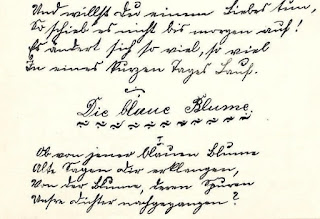 Und willst Du einem Liebes tun,
So schieb es nicht bis morgen auf!
Es ändert sich so viel, so viel
In eines kurzen Tages Lauf.
Die blaue Blume.
I
Ob von jener blauen Blume
Alte Sagen dir erklangen,
Von der Blume, deren Spuren
Unsre Dichter nachgegangen?